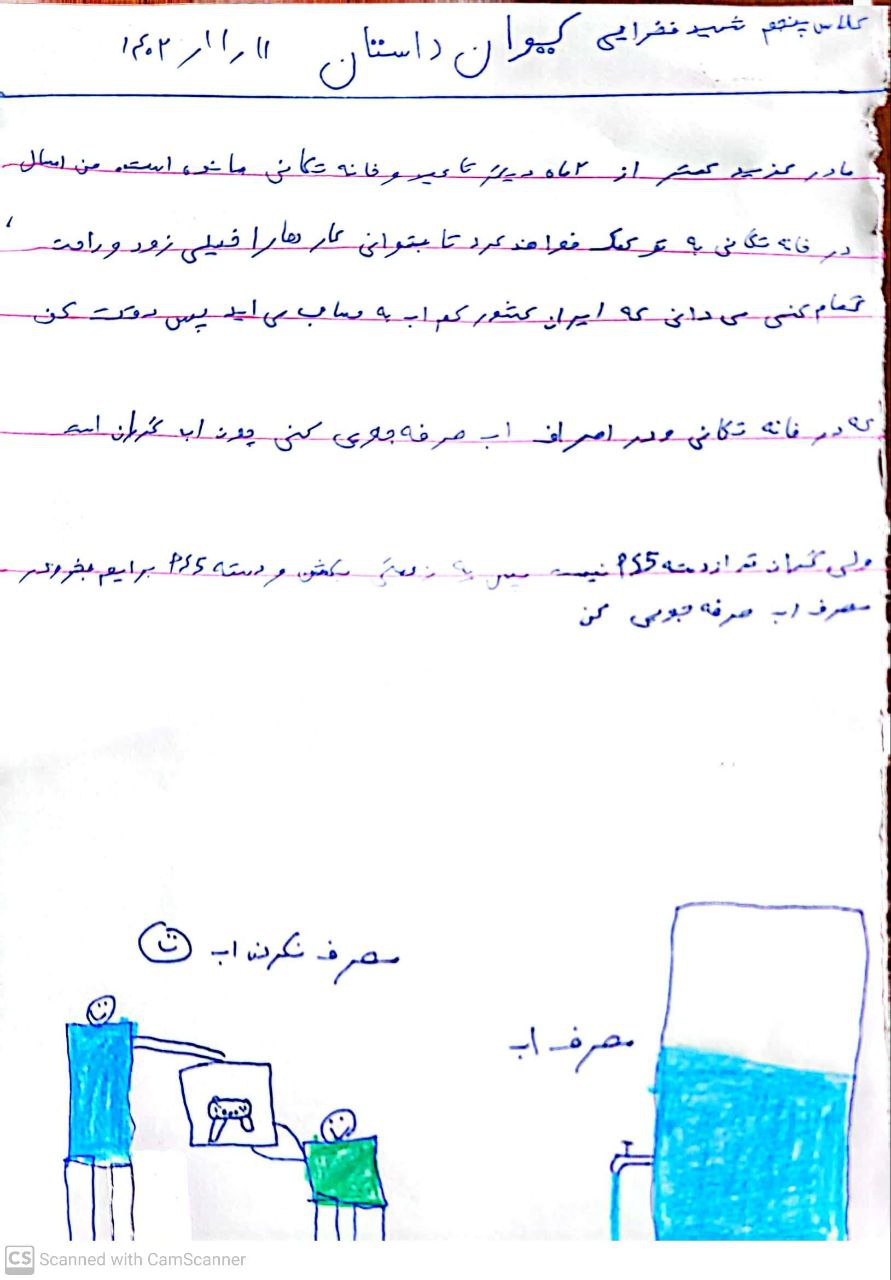 کلاس پنجم شهید فخرایی کیوان داستان ۱۴۰۲/۱۱/۱۱
مادر عزیز کمتر از ۲ماه دیگر تا عید و خانه تکانی مانده است. من امسال
در خانه تکانی به تو کمک خواهم کرد تا بتوانی کار هارا خیلی زود و راحت
تمام کنی می دانی که ایران کشور کم اب به حساب می اید پس دقت کن
که در خانه تکانی ودر اصراف اب صرفه جویی کنی چون اب گران است
ولی گران تر ازدسته PS5 نیست پس به و دسته PS5 برایم بخر ودر
مصرف اب صرفه جویی کن
مصرف نکردن اب
مصرف اب
CS Scanned with CamScanner